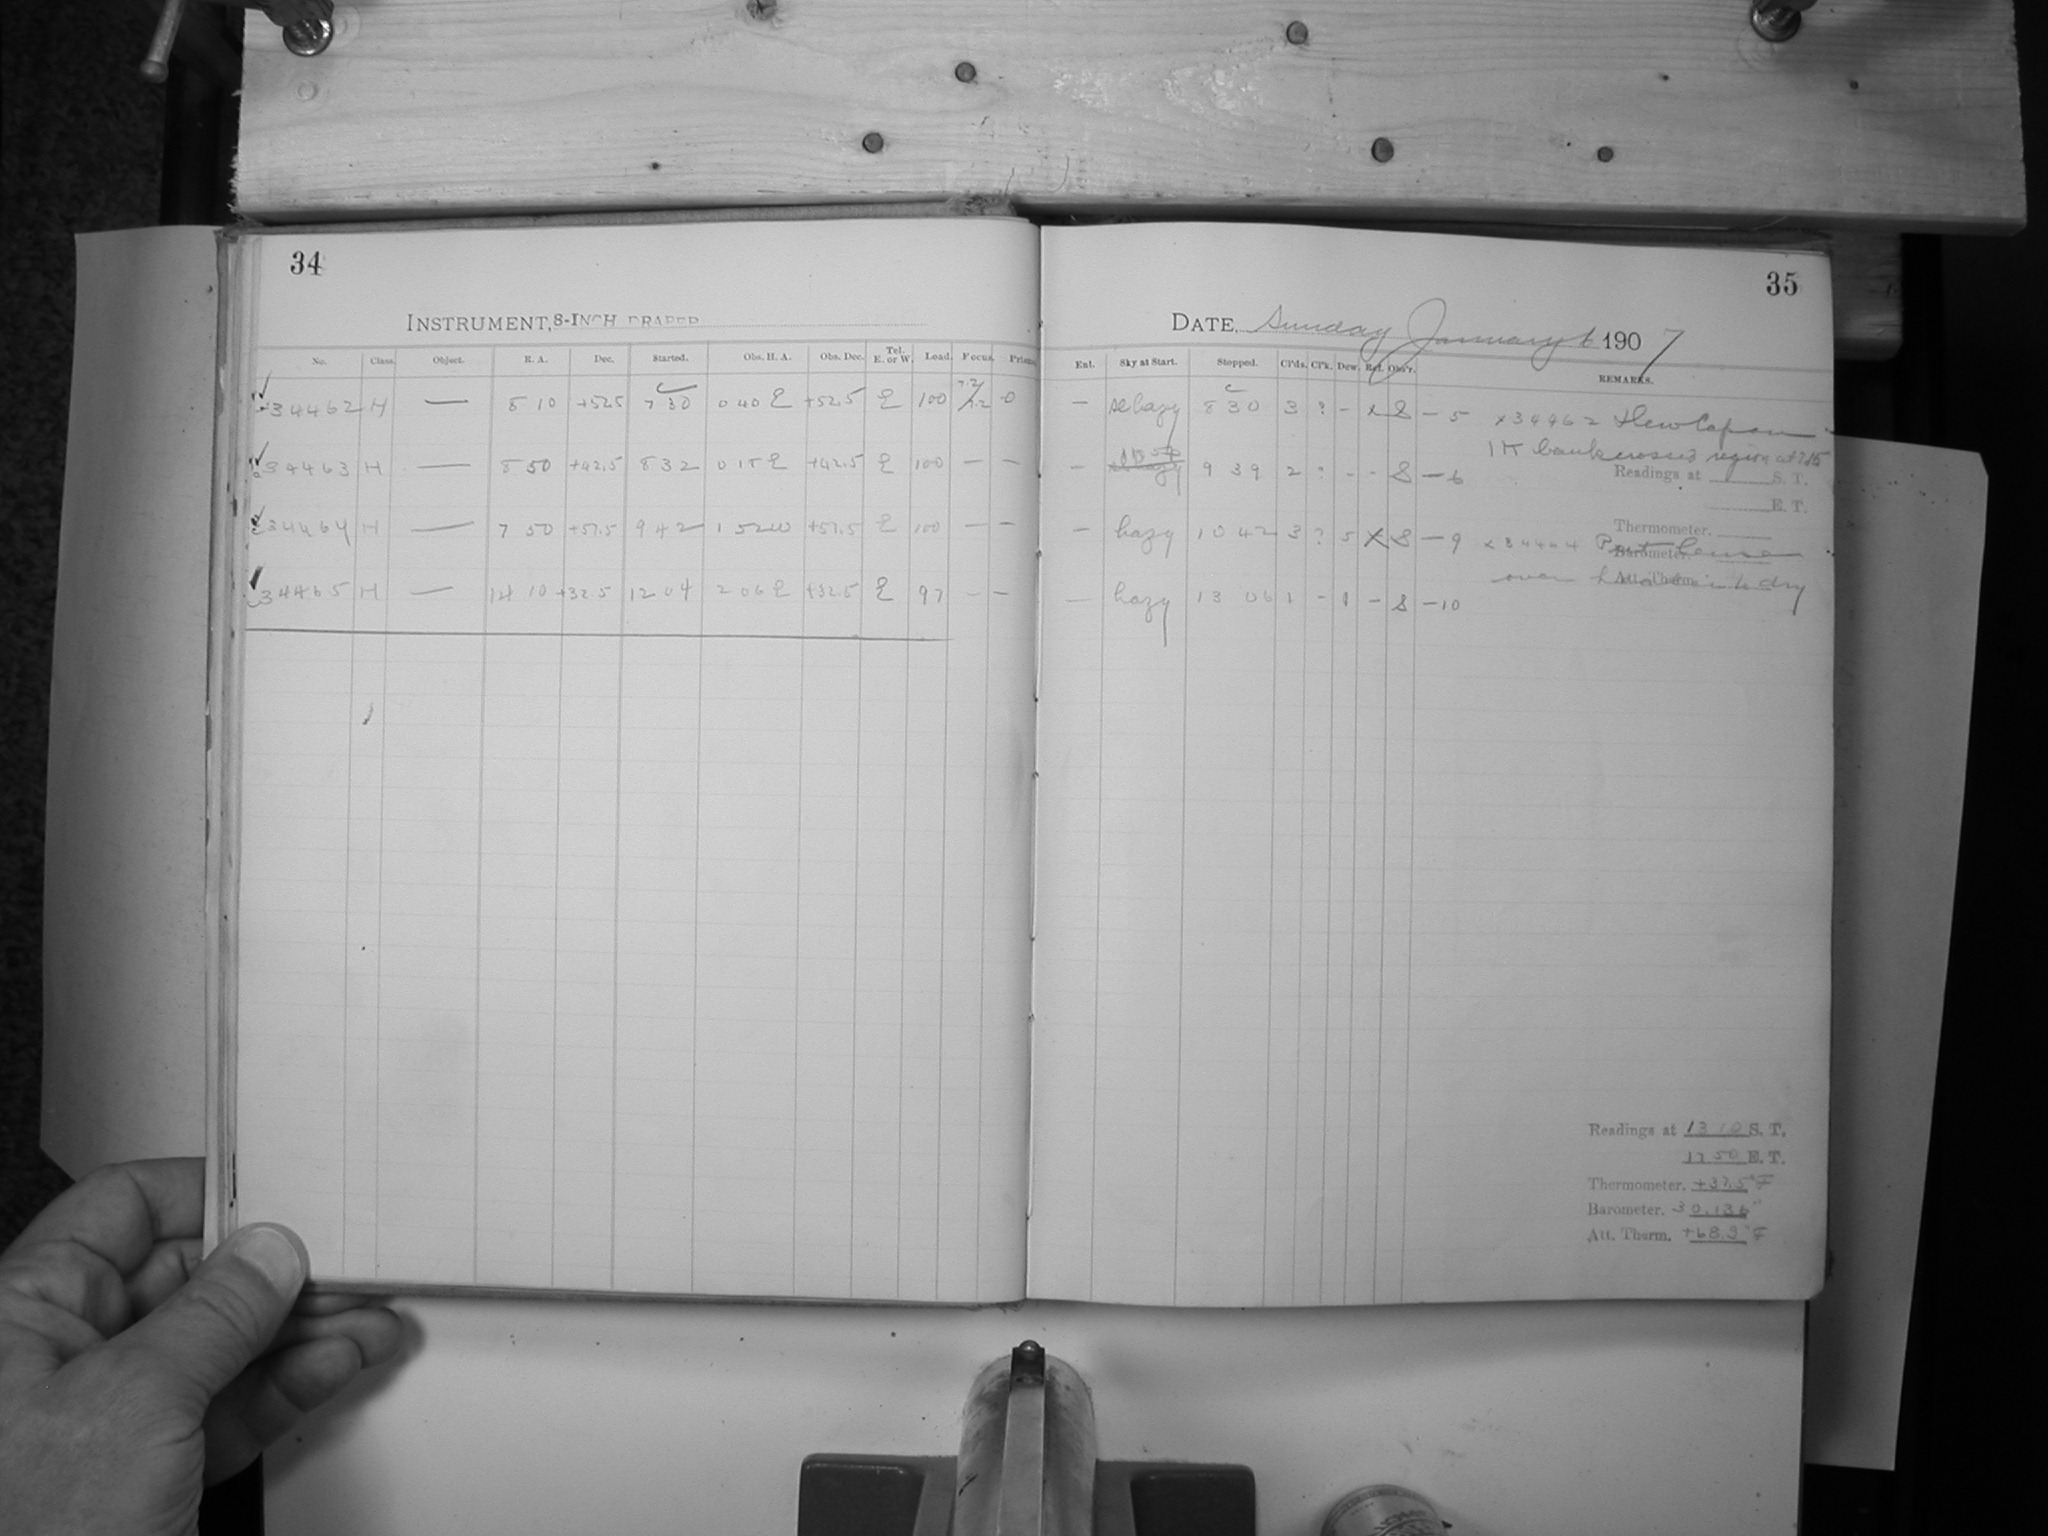 34
INSTRUMENT, 8-INCH DRAPER
No. Class. Object. R. A. Dec. Started. Obs. H. A. Obs. Dec. Tel. E. or W. Load. Focus. Prism.
34462 H — 8 10 +52.5 7 30 0 40 E +52.5 E 100 7.2/7.2 0
34463 H — 8 50 +42.5 8 32 0 18 E +42.5 E 100 — —
34464 H — 7 50 +57.5 9 42 1 52 W +57.5 E 100 — —
34465 H — 14 10 +32.5 12 04 2 06 E +32.5 E 97 — —
35
DATE, Sunday January 6 1907
Ent. Sky at Start. Stopped. Cl'ds. Cl'k. Dew. Ref. Obs'r. REMARKS.
— hazy 8 30 3 ? - x S — 5 x34462
— 9 39 2 ? - - S — 6
— hazy 10 42 3 ? 5 x S — 9 x34464 Put
— hazy 13 06 1 - 1 - S — 10
1K bank crossed region at
Readings at S. T.
E. T.
Thermometer.
Barometer.
over dry
Att. Therm.
Readings at 13 10 S. T.
17 50 E. T.
Thermometer. +37.5°F
Barometer. 30.136"
Att. Therm. +68.3°F